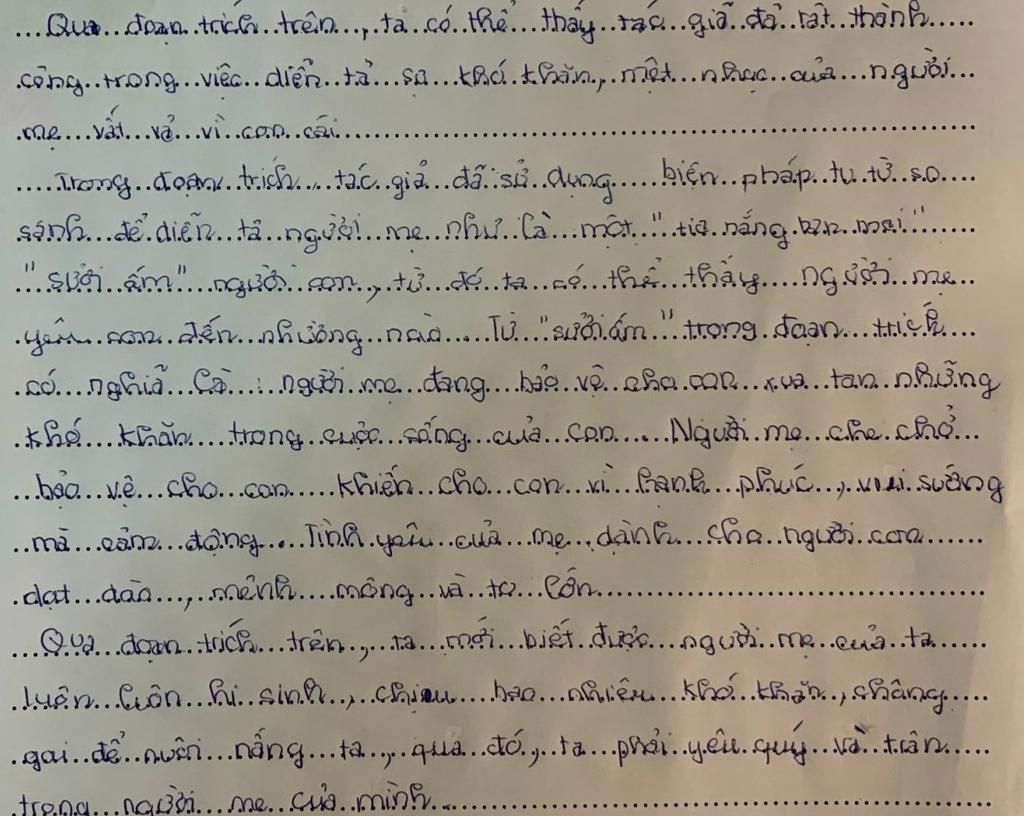 Qua đoạn trích trên, ta có thể thấy tác giả đã rất thành
công trong việc diễn tả sự khó khăn, mệt nhọc của người
mẹ vất vả vì con cái
Trong đoạn trích tác giả đã sử dụng biện pháp tu từ so
sánh để diễn tả người mẹ như là một "tia nắng ban mai"
"sưởi ấm" người con, từ đó ta có thể thấy người mẹ
yêu con đến nhường nào. Từ "sưởi ấm" trong đoạn trích
có nghĩa là: người mẹ đang bảo vệ cho con xua tan những
khó khăn trong cuộc sống của con. Người mẹ che chở
bảo vệ cho con khiến cho con vì hạnh phúc, vui sướng
mà cảm động. Tình yêu của mẹ dành cho người con
dạt dào, mênh mông và to lớn
Qua đoạn trích trên, ta mới biết được người mẹ của ta
luôn luôn hi sinh, chịu bao nhiêu khó khăn, chông
gai để nuôi nấng ta, qua đó, ta phải yêu quý và trân
trọng người mẹ của mình